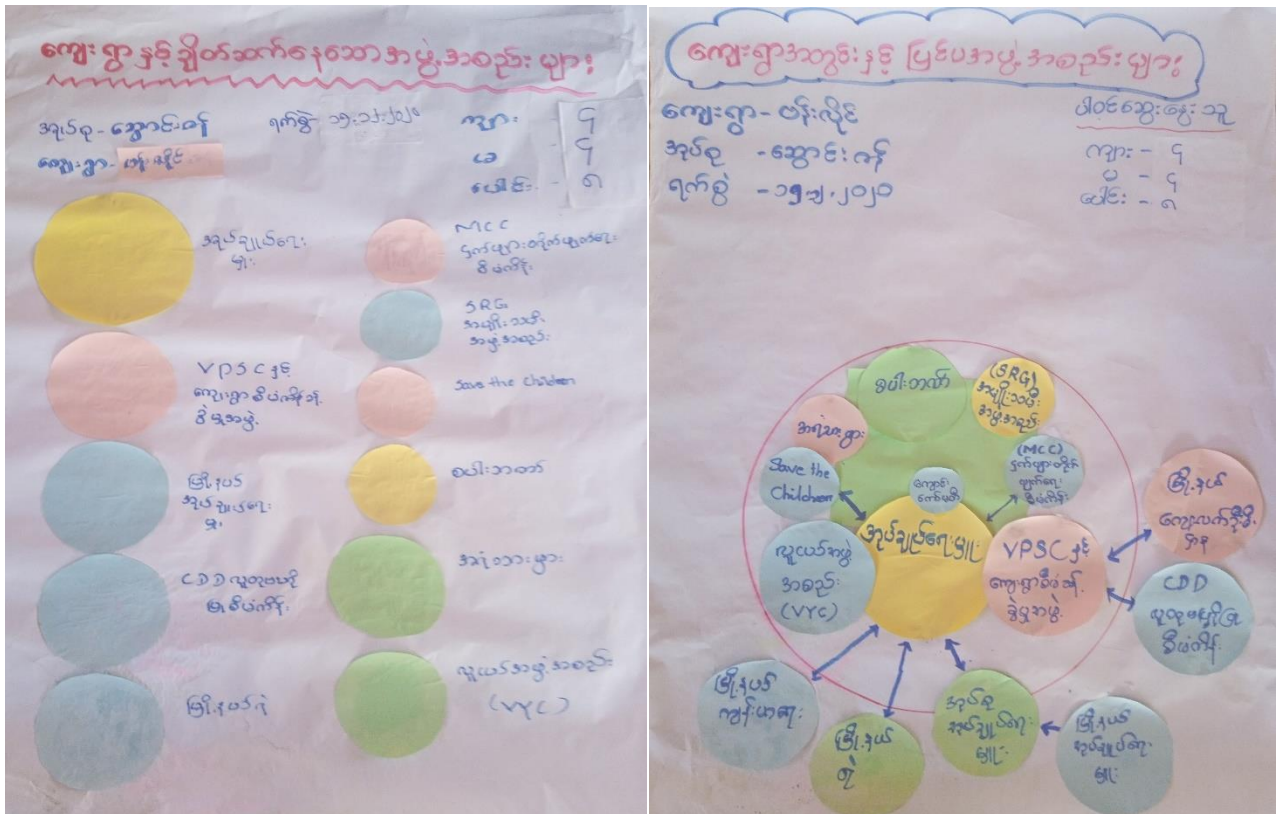 ကျေးရွာနှင့်ချိတ်ဆက်နေသောအဖွဲ့အစည်းများ
အုပ်စု - ဆောင်းဇန်
ရက်စွဲ ၁၅.၁၂.၂၀၂၀
ကျေးရွာ - ပန်းလှိုင်
ကျား - ၄
မ - ၄
ပေါင်း - ၈
အုပ်ချုပ်ရေး
မှူး
VPSC နှင့်
မြို့နယ်
အုပ်ချုပ်ရေး
မှူး
CDD လူထုဗဟိုပြု
စီမံကိန်း
မြို့နယ်ရဲ
MCC
ငှက်ဖျားတိုက်ဖျက်ရေး
စီမံကိန်း
SRG
အမျိုးသမီး
အဖွဲ့အစည်း
Save the Children
စပါးဘဏ်
အရံသားဖွား
လူငယ်အဖွဲ့အစည်း
(VYC)
ကျေးရွာအတွင်းနှင့် ပြင်ပအဖွဲ့အစည်းများ
ကျေးရွာ - ပန်းလှိုင်
အုပ်စု - ဆောင်းဇန်
ရက်စွဲ - ၁၅.၁၂.၂၀၂၀
ပါဝင်ဆွေးနွေးသူ
ကျား - ၄
မ - ၄
ပေါင်း - ၈
စပါးဘဏ်
(SRG)
အမျိုးသမီး
အဖွဲ့အစည်း
အရံသားဖွား
Save the
Children
(MCC)
ငှက်ဖျားတိုက်
ဖျက်ရေး
စီမံကိန်း
ကျောင်း
ကော်မတီ
အုပ်ချုပ်ရေးမှူး
လူငယ်အဖွဲ့
အစည်း
(VYC)
VPSC နှင့်
မြို့နယ်
ကျေးလက်ဦးစီး
ဌာန
CDD
လူထုဗဟိုပြု
စီမံကိန်း
မြို့နယ်
ကျန်းမာရေး
မြို့နယ်
ရဲ
အုပ်စု
အုပ်ချုပ်ရေး
မှူး
မြို့နယ်
အုပ်ချုပ်ရေး
မှူး